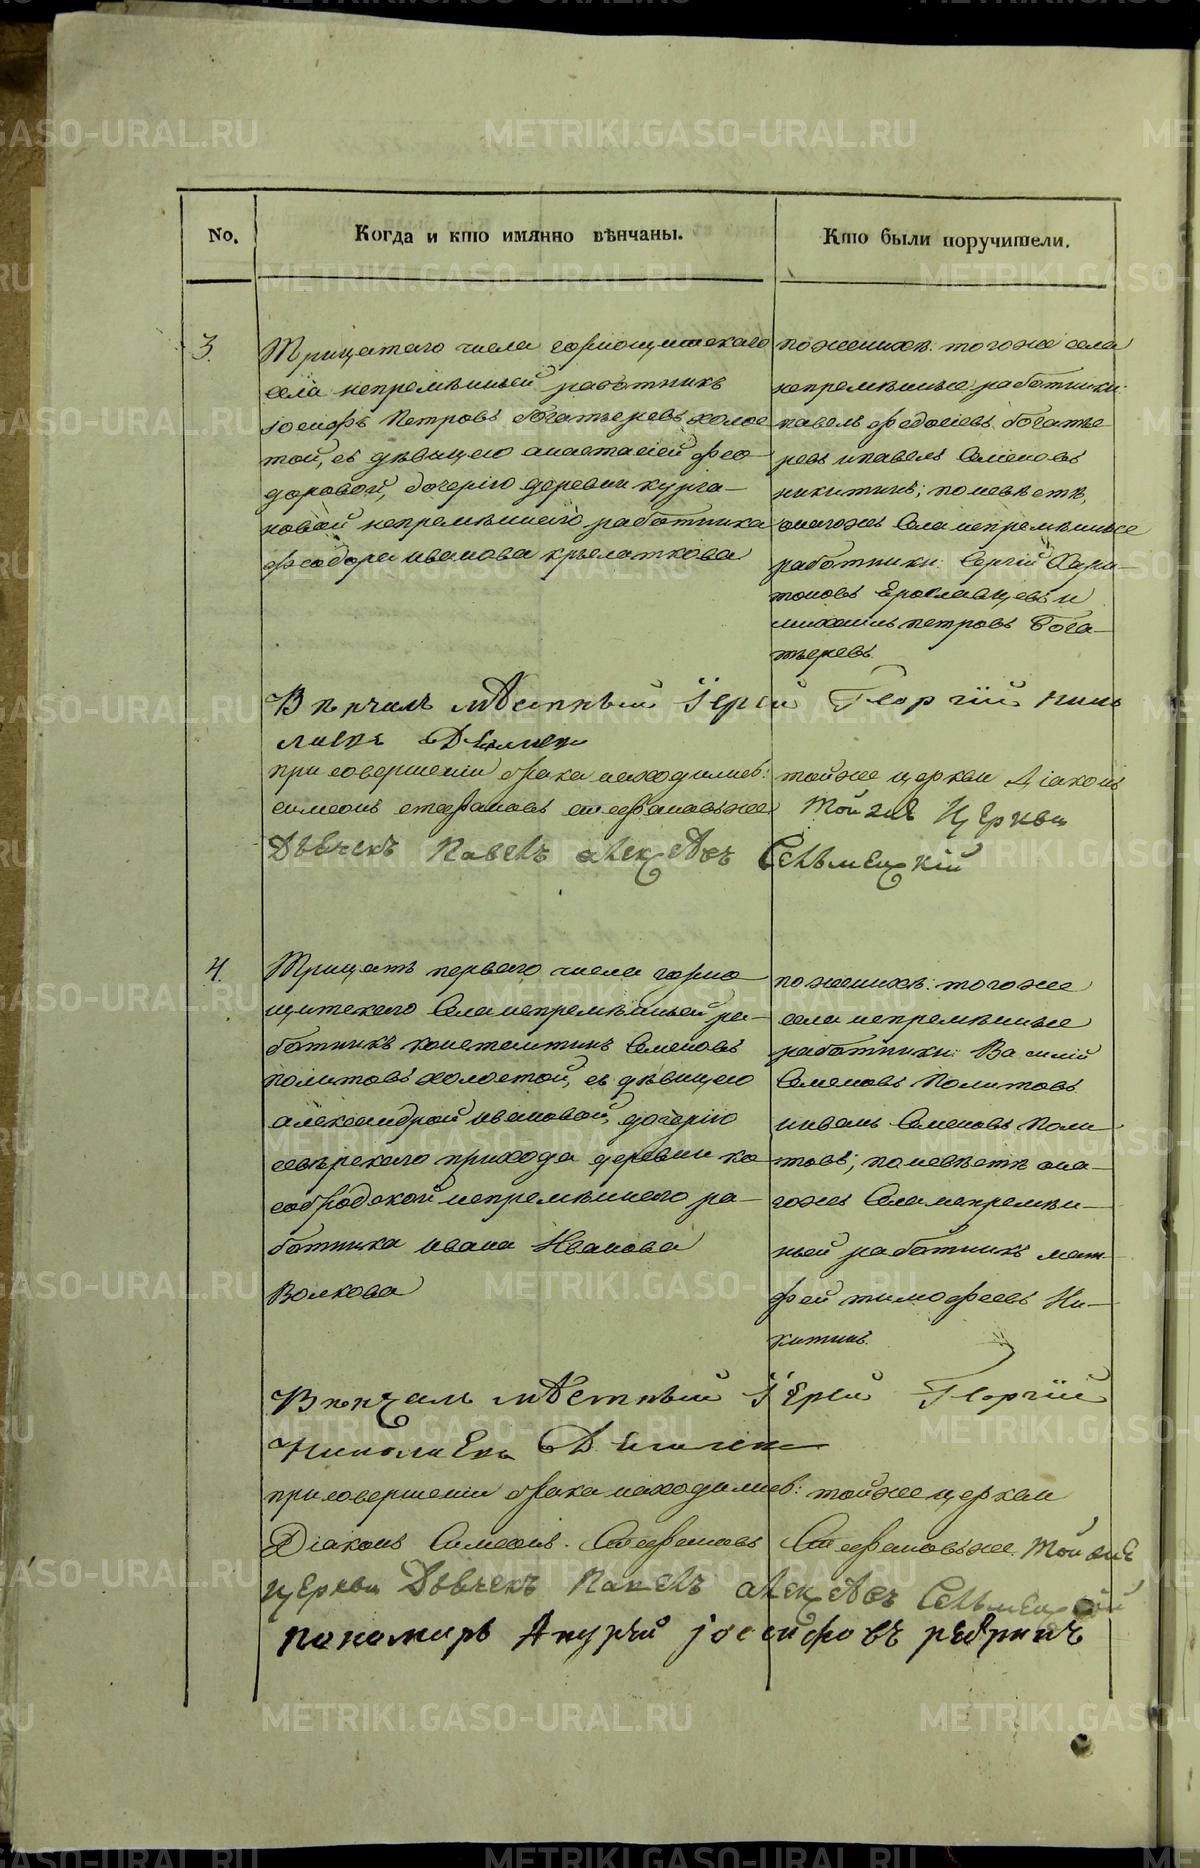 No.
Когда и кто имянно вѣнчаны.
Кто были поручители.
3.
Трицатаго числа горнощитскаго
села непремѣнный работникъ
Іосифъ Петровъ богатыревъ холос
той, съ дѣвицею анастасіей фео-
доровой, дочерію деревни курга-
новой непремѣннаго работника
феодора иванова крылаткова
по женихѣ: того же села
непремѣнные работники:
павелъ федосіевъ богаты-
ревъ и павелъ Семеновъ
никитинъ; по невѣстѣ,
онагожъ Села непремѣнные
работники: Сергій Хари-
тоновъ Ерославцевъ и
михаилъ петровъ Бога-
тыревъ
Вѣнчалъ мѣстный Іерей Георгій Нико
лаевъ
при совершеніи брака находились: тойже церкви Діаконъ
симеонъ стефановъ стефановыхже Тойже Церкви
Дьячекъ Павелъ алексѣевъ
4.
Трицать перваго числа горно
щитскаго Села непремѣнный ра-
ботникъ константинъ Семеновъ
политовъ холостой, съ дѣвицею
александрой ивановой, дочерію
сѣвѣрскаго прихода деревни ко
собродской непремѣннаго ра-
ботника ивана Иванова
Волкова
по женихѣ: того же
села непремѣнные
работники: Василій
Семеновъ Политовъ
и иванъ Семеновъ Поли-
товъ; по невѣстѣ она-
гожъ Села непремѣн-
ный работникъ мат-
фей тимофеевъ Ни-
китинъ.
Вѣнчалъ мѣстный Іерей Георгій
Николаевъ
при совершеніи брака находились: тойже церкви
Діаконъ Симеонъ Стефановъ Стефановыхже. Тойже
церкви Дьячекъ Павелъ алексѣевъ
пономарь Андрей іосифовъ
METRIKI.GASO-URAL.RU